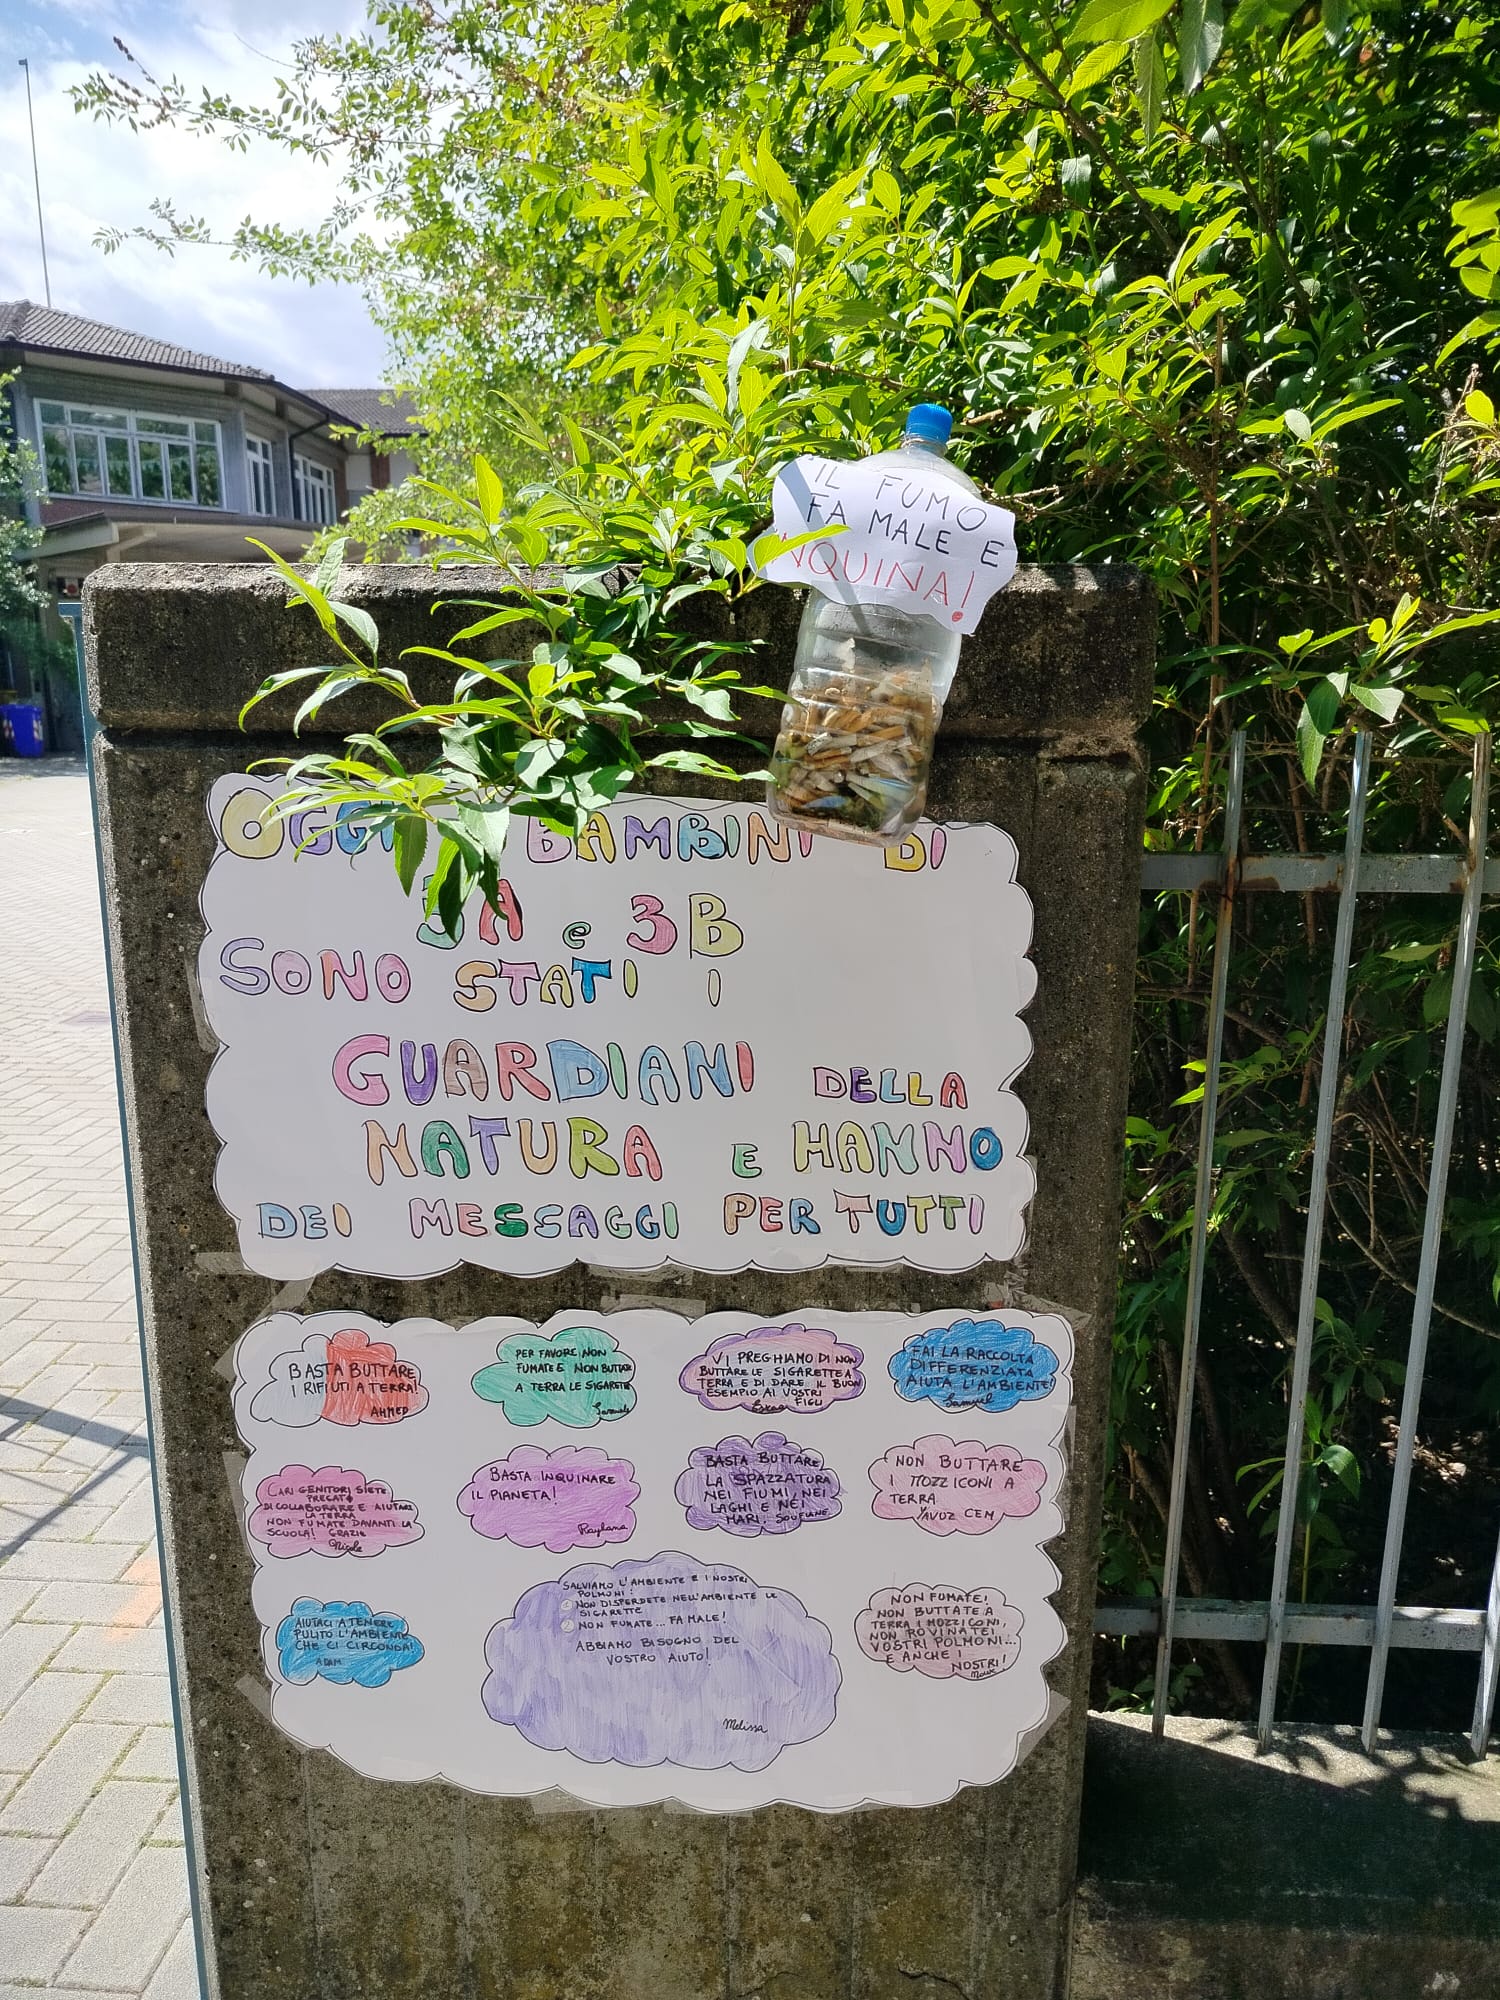 IL FUMO
FA MALE E
INQUINA!
OGGI BAMBINI DI
3A e 3B
SONO STATI I
GUARDIANI DELLA
NATURA E HANNO
DEI MESSAGGI PER TUTTI
BASTA BUTTARE
I RIFIUTI A TERRA!
AHMED
PER FAVORE NON
FUMATE E NON BUTTATE
A TERRA LE SIGARETTE
VI PREGHIAMO DI NON
BUTTARE LE SIGARETTE A
TERRA E DI DARE IL BUON
ESEMPIO AI VOSTRI
FIGLI
FAI LA RACCOLTA
DIFFERENZIATA
AIUTA L'AMBIENTE!
Samuel
CARI GENITORI SIETE
PREGATI
DI COLLABORARE E AIUTARE
LA TERRA
NON FUMATE DAVANTI LA
SCUOLA! GRAZIE
Nicole
BASTA INQUINARE
IL PIANETA!
Rayhana
BASTA BUTTARE
LA SPAZZATURA
NEI FIUMI, NEI
LAGHI E NEI
MARI. SOUFIANE
NON BUTTARE
I MOZZICONI A
TERRA
YAVUZ CEM
AIUTACI A TENERE
PULITO L'AMBIENTE
CHE CI CIRCONDA!
ADAM
SALVIAMO L'AMBIENTE E I NOSTRI
POLMONI:
1 NON DISPERDETE NELL'AMBIENTE LE
SIGARETTE
2 NON FUMATE... FA MALE!
ABBIAMO BISOGNO DEL
VOSTRO AIUTO!
Melissa
NON FUMATE!
NON BUTTATE A
TERRA I MOZZICONI,
NON ROVINATE I
VOSTRI POLMONI...
E ANCHE I
NOSTRI!